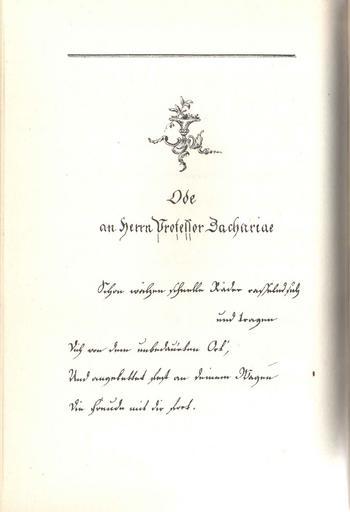 Ode
an Herrn Professor Zachariae
Schon wälzen schnelle Räder rasselnd sich
und tragen
Dich von dem unbedaurten Ort,
Und angekettet fest an deinem Wagen
Die Freude mit dir fort.